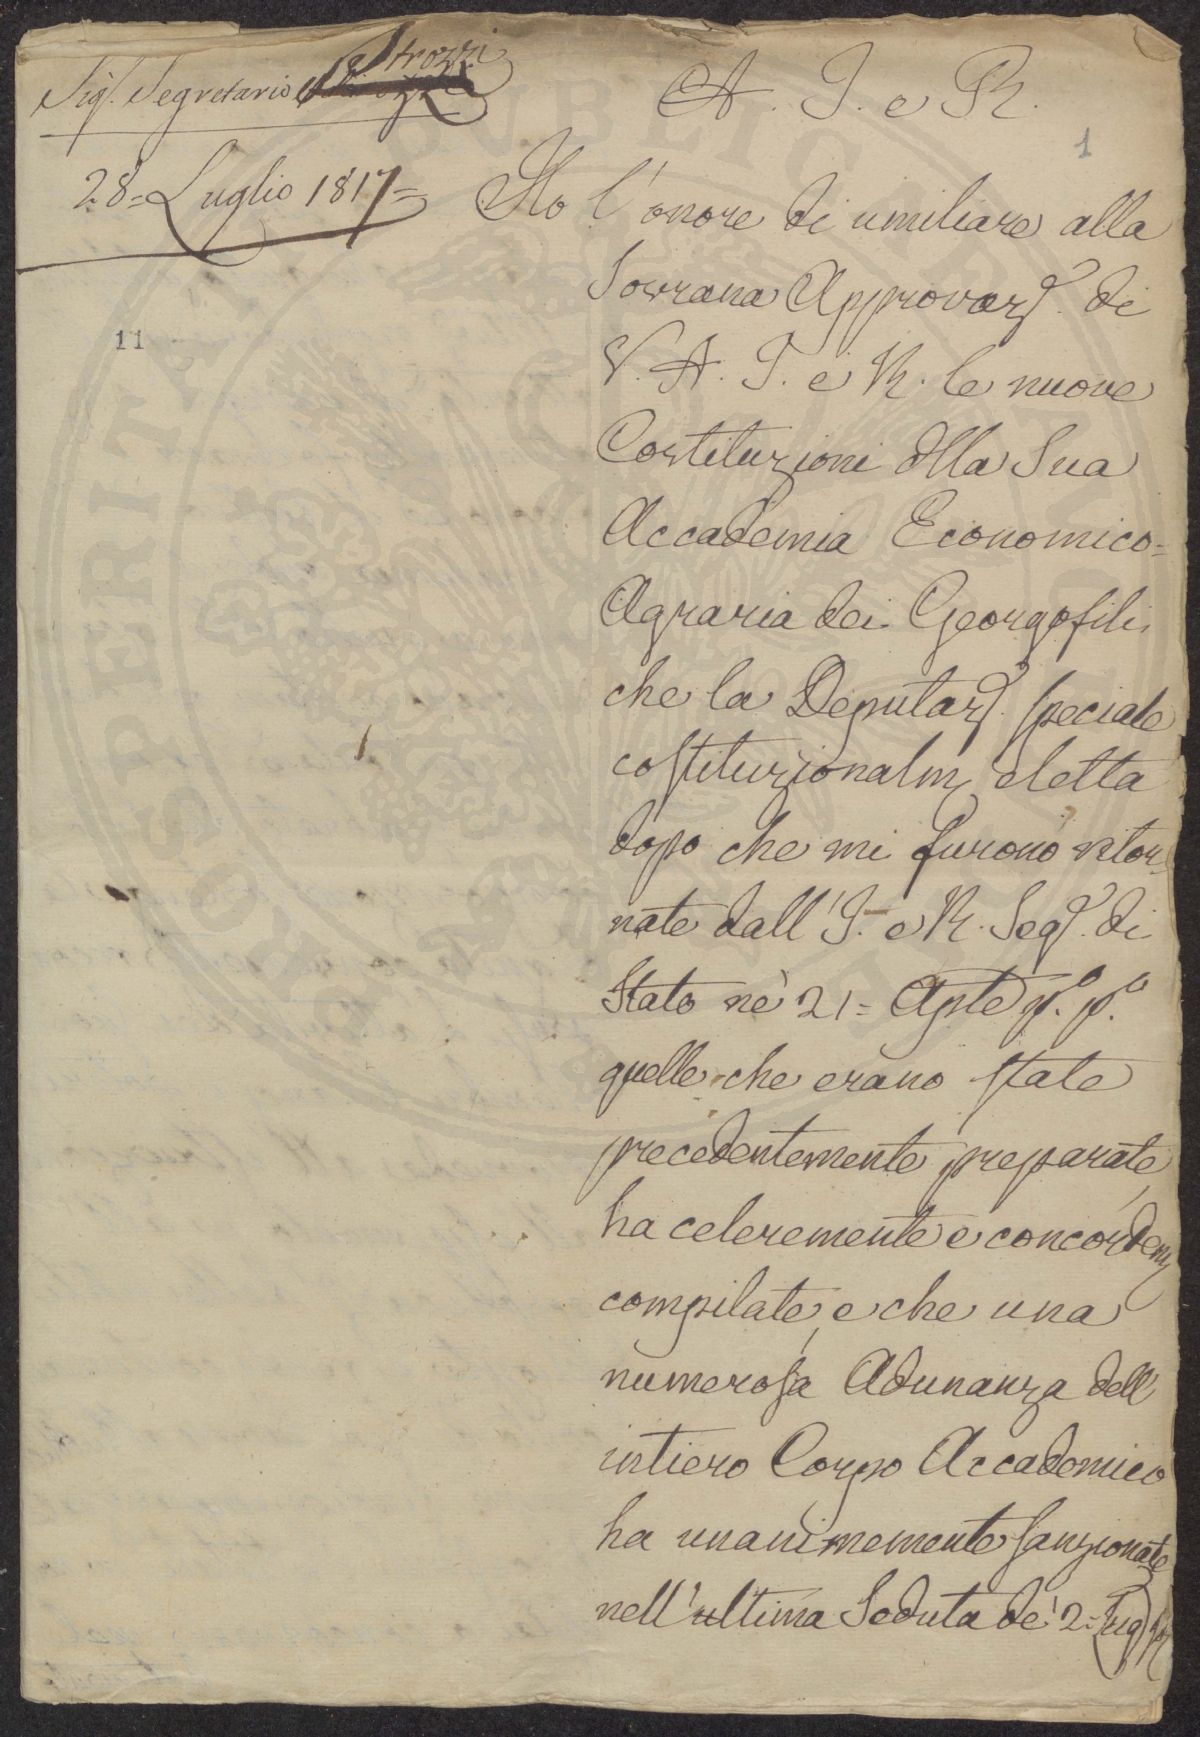 Strozzi
Sig.r Segretario
28= Luglio 1817=
11
A. I. e R.
1
Ho l'onore di umiliare alla
Sovrana Approvaz.e di
V. A. I. e R. le nuove
Costituzioni dlla Sua
Accademia Economico=
Agraria dei Georgofili
che la Deputaz.e speciale
costituzionalm.e eletta
dopo che mi furono ritor=
nate dall'I. e R. Seg.a di
Stato ne' 21= Aple p.o p.o
quelle che erano state
precedentemente preparate,
ha celeremente e concordem.e
compilate, e che una
numerosa Adunanza dell'
intiero Corpo Accademico
ha unanimemente sanzionate
nell'ultima Seduta de' 2= Lug.o